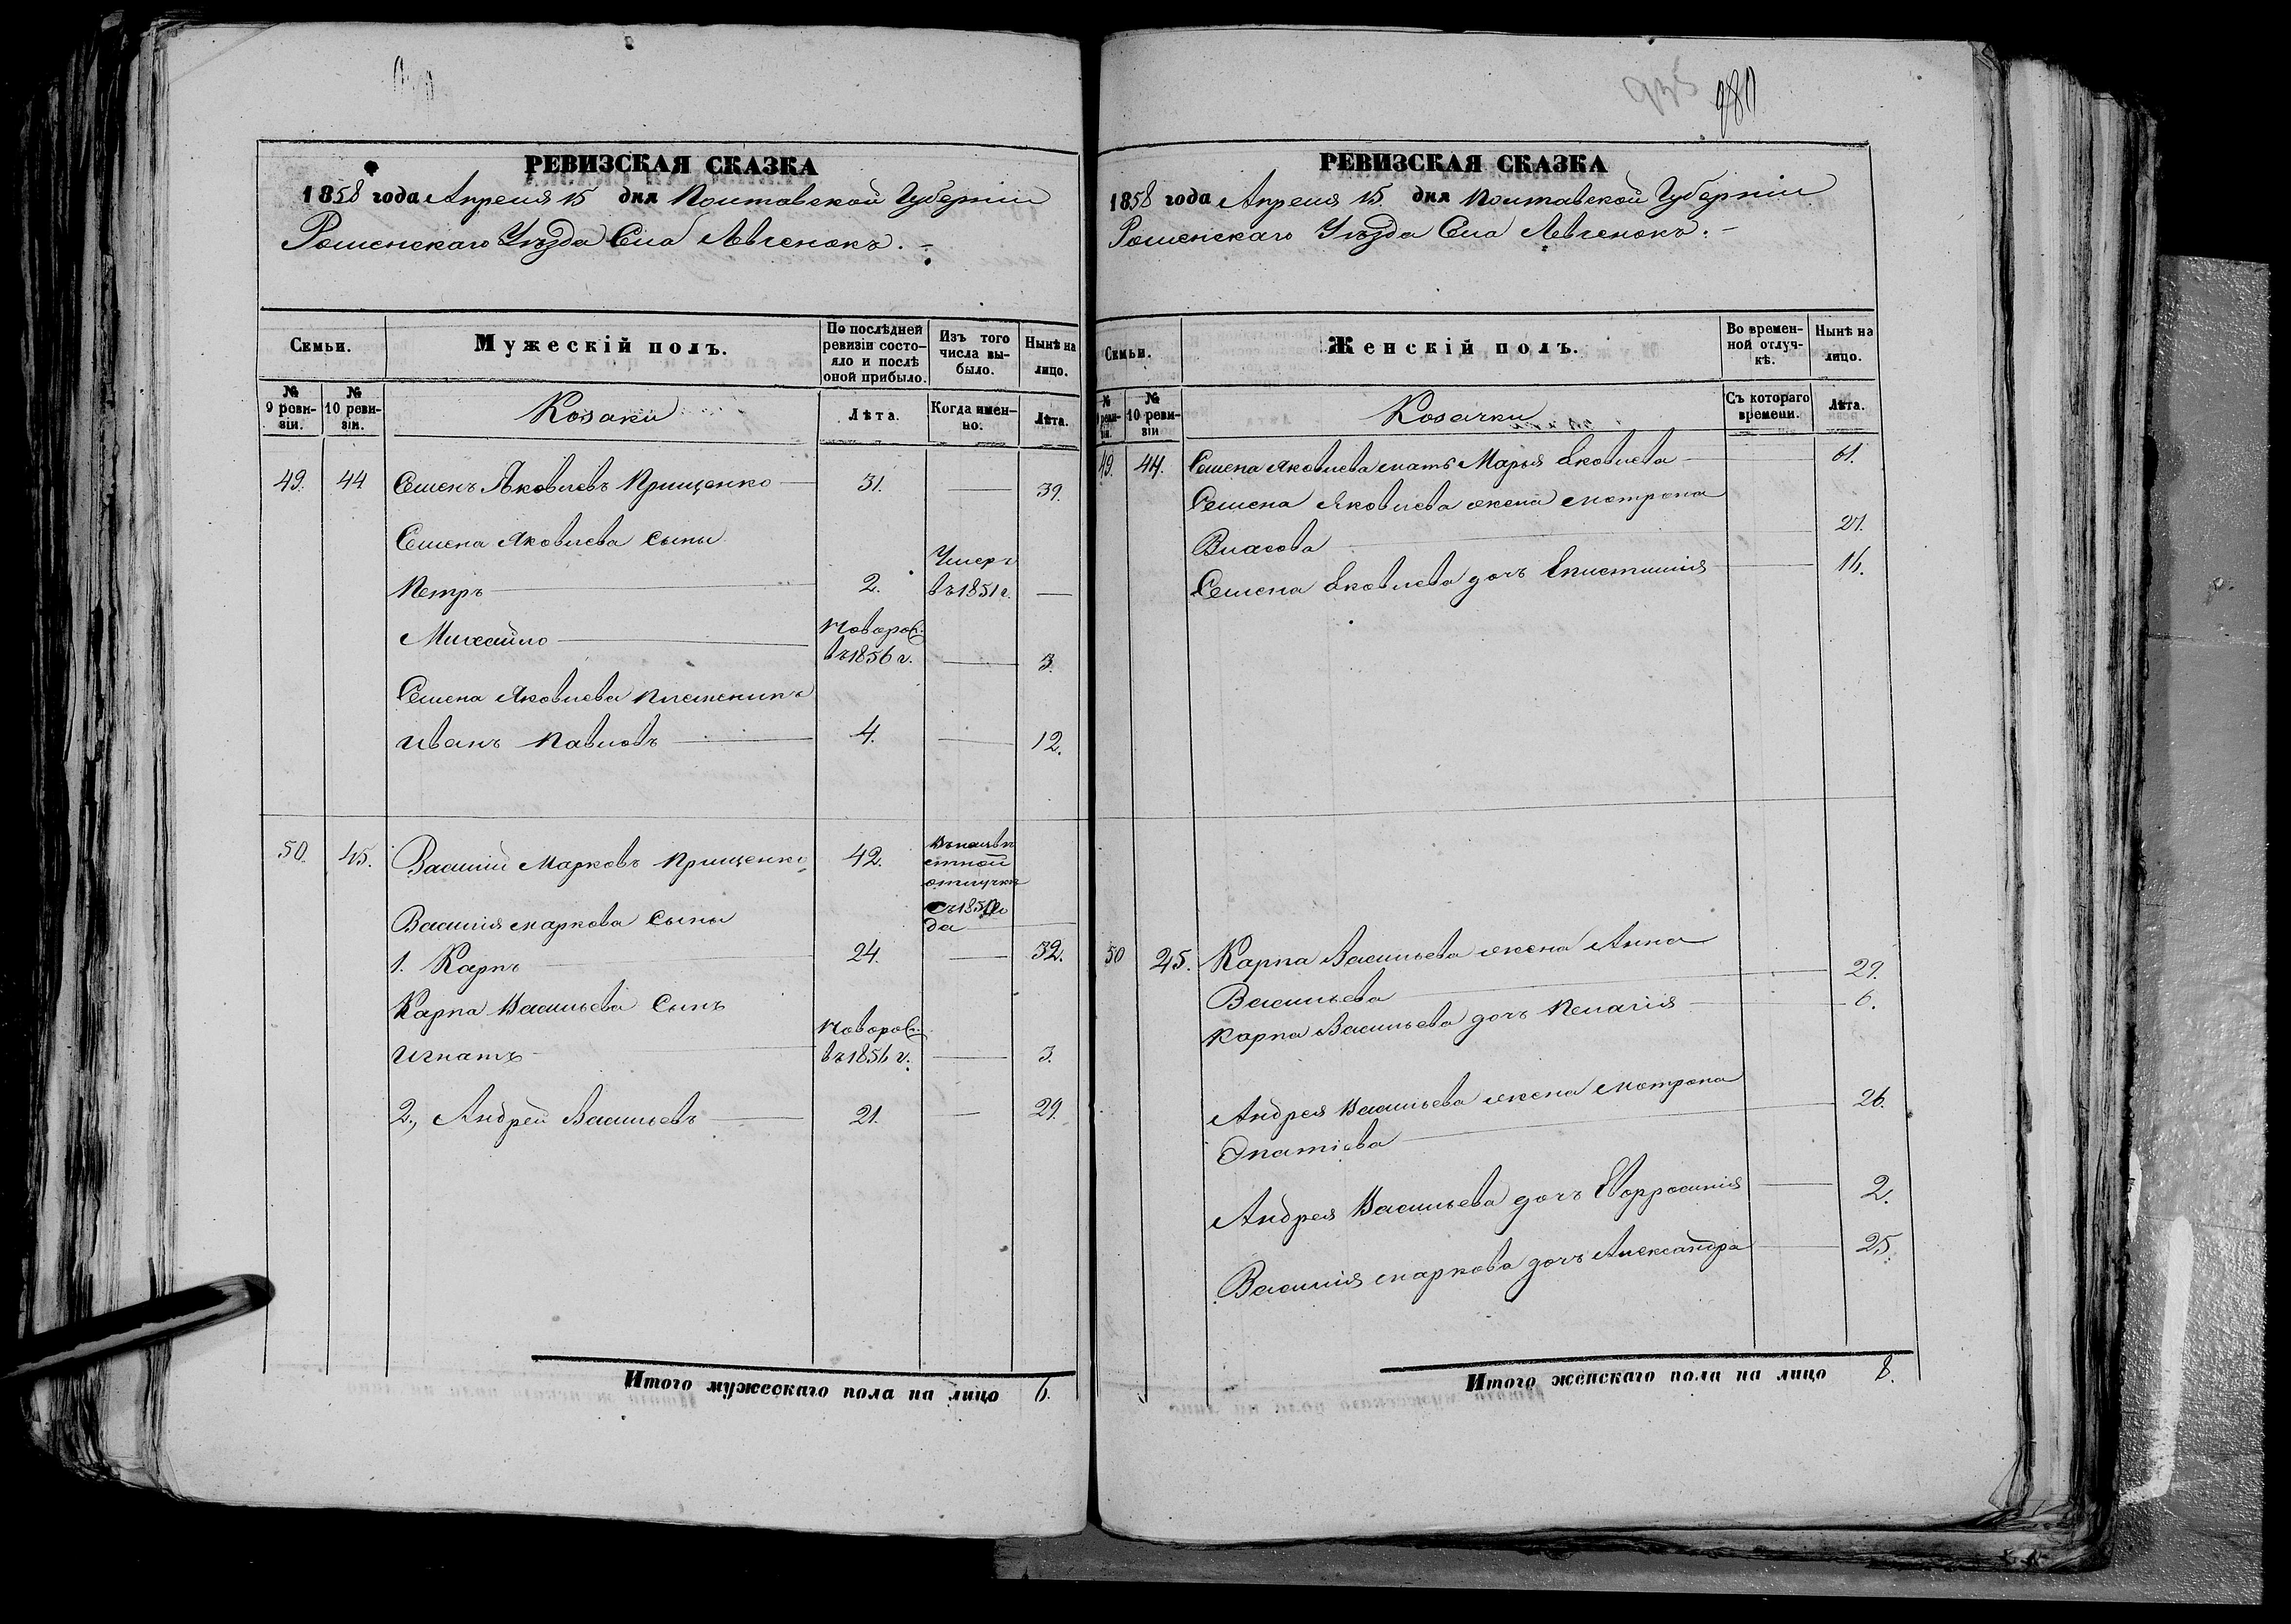 РЕВИЗСКАЯ СКАЗКА
1858 года Апреля 15 дня Полтавской Губерніи
Роменскаго Уѣзда Села Левченокъ.
Семьи.
Мужескій полъ.
По послѣдней ревизіи состояло и послѣ оной прибыло.
Изъ того числа выбыло.
Нынѣ на лицо.
№ 9 ревизіи.
№ 10 ревизіи.
Козаки
Лѣта.
Когда именно.
Лѣта.
49. 44 Семенъ Яковлевъ Прищенко 31. 39.
Семена Яковлева сыны
Петръ 2. Умеръ въ 1851 г.
Михайло Новорож. въ 1856 г. 3.
Семена Яковлева племеникъ
Иванъ Павловъ 4. 12.
50. 45. Василій Марковъ Прищенко 42.
отлучкѣ
Василія Маркова сыны
1. Карпъ 24. 32.
Карпа Васильева сынъ
Игнатъ Новорож. въ 1856 г. 3.
2., Андрей Васильевъ 21. 29.
Итого мужескаго пола на лицо 6.
935 980
РЕВИЗСКАЯ СКАЗКА
1858 года Апреля 15. дня Полтавской Губерніи
Роменскаго Уѣзда Села Левченокъ.
Семьи.
Женскій полъ.
Во временной отлучкѣ.
Нынѣ на лицо.
№ 9 ревизіи.
№ 10 ревизіи
Козачки
Съ котораго времени.
Лѣта.
49. 44. Семена Яковлева мать Марья Яковлева 61.
Семена Яковлева жена Мотрона
Власова 27.
Семена Яковлева дочь Епистимія 14.
50 25. Карпа Васильева жена Анна
Васильева 29.
Карпа Васильева дочь Пелагія 6.
Андрея Васильева жена Мотрона
Игнатіева 26.
Андрея Васильева дочь Евфросинія 2.
Василія Маркова дочь Александра 25.
Итого женскаго пола на лицо 8.